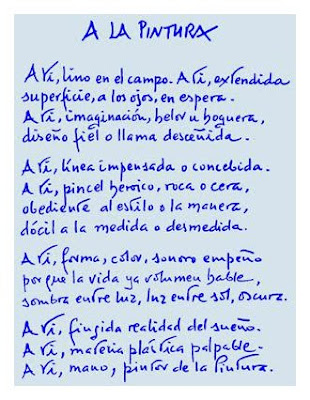 A LA PINTURA
A ti, lino en el campo. A ti, extendida
superficie, a los ojos, en espera.
A ti, imaginación, helor u hoguera,
diseño fiel o llama desceñida.
A ti, línea impensada o concebida.
A ti, pincel heroico, roca o cera,
obediente al estilo o la manera,
dócil a la medida o desmedida.
A ti, forma, color, sonoro empeño
porque la vida ya volumen hable,
sombra entre luz, luz entre sol, oscura.
A ti, fingida realidad del sueño.
A ti, materia plástica palpable.
A ti, mano, pintor de la Pintura.